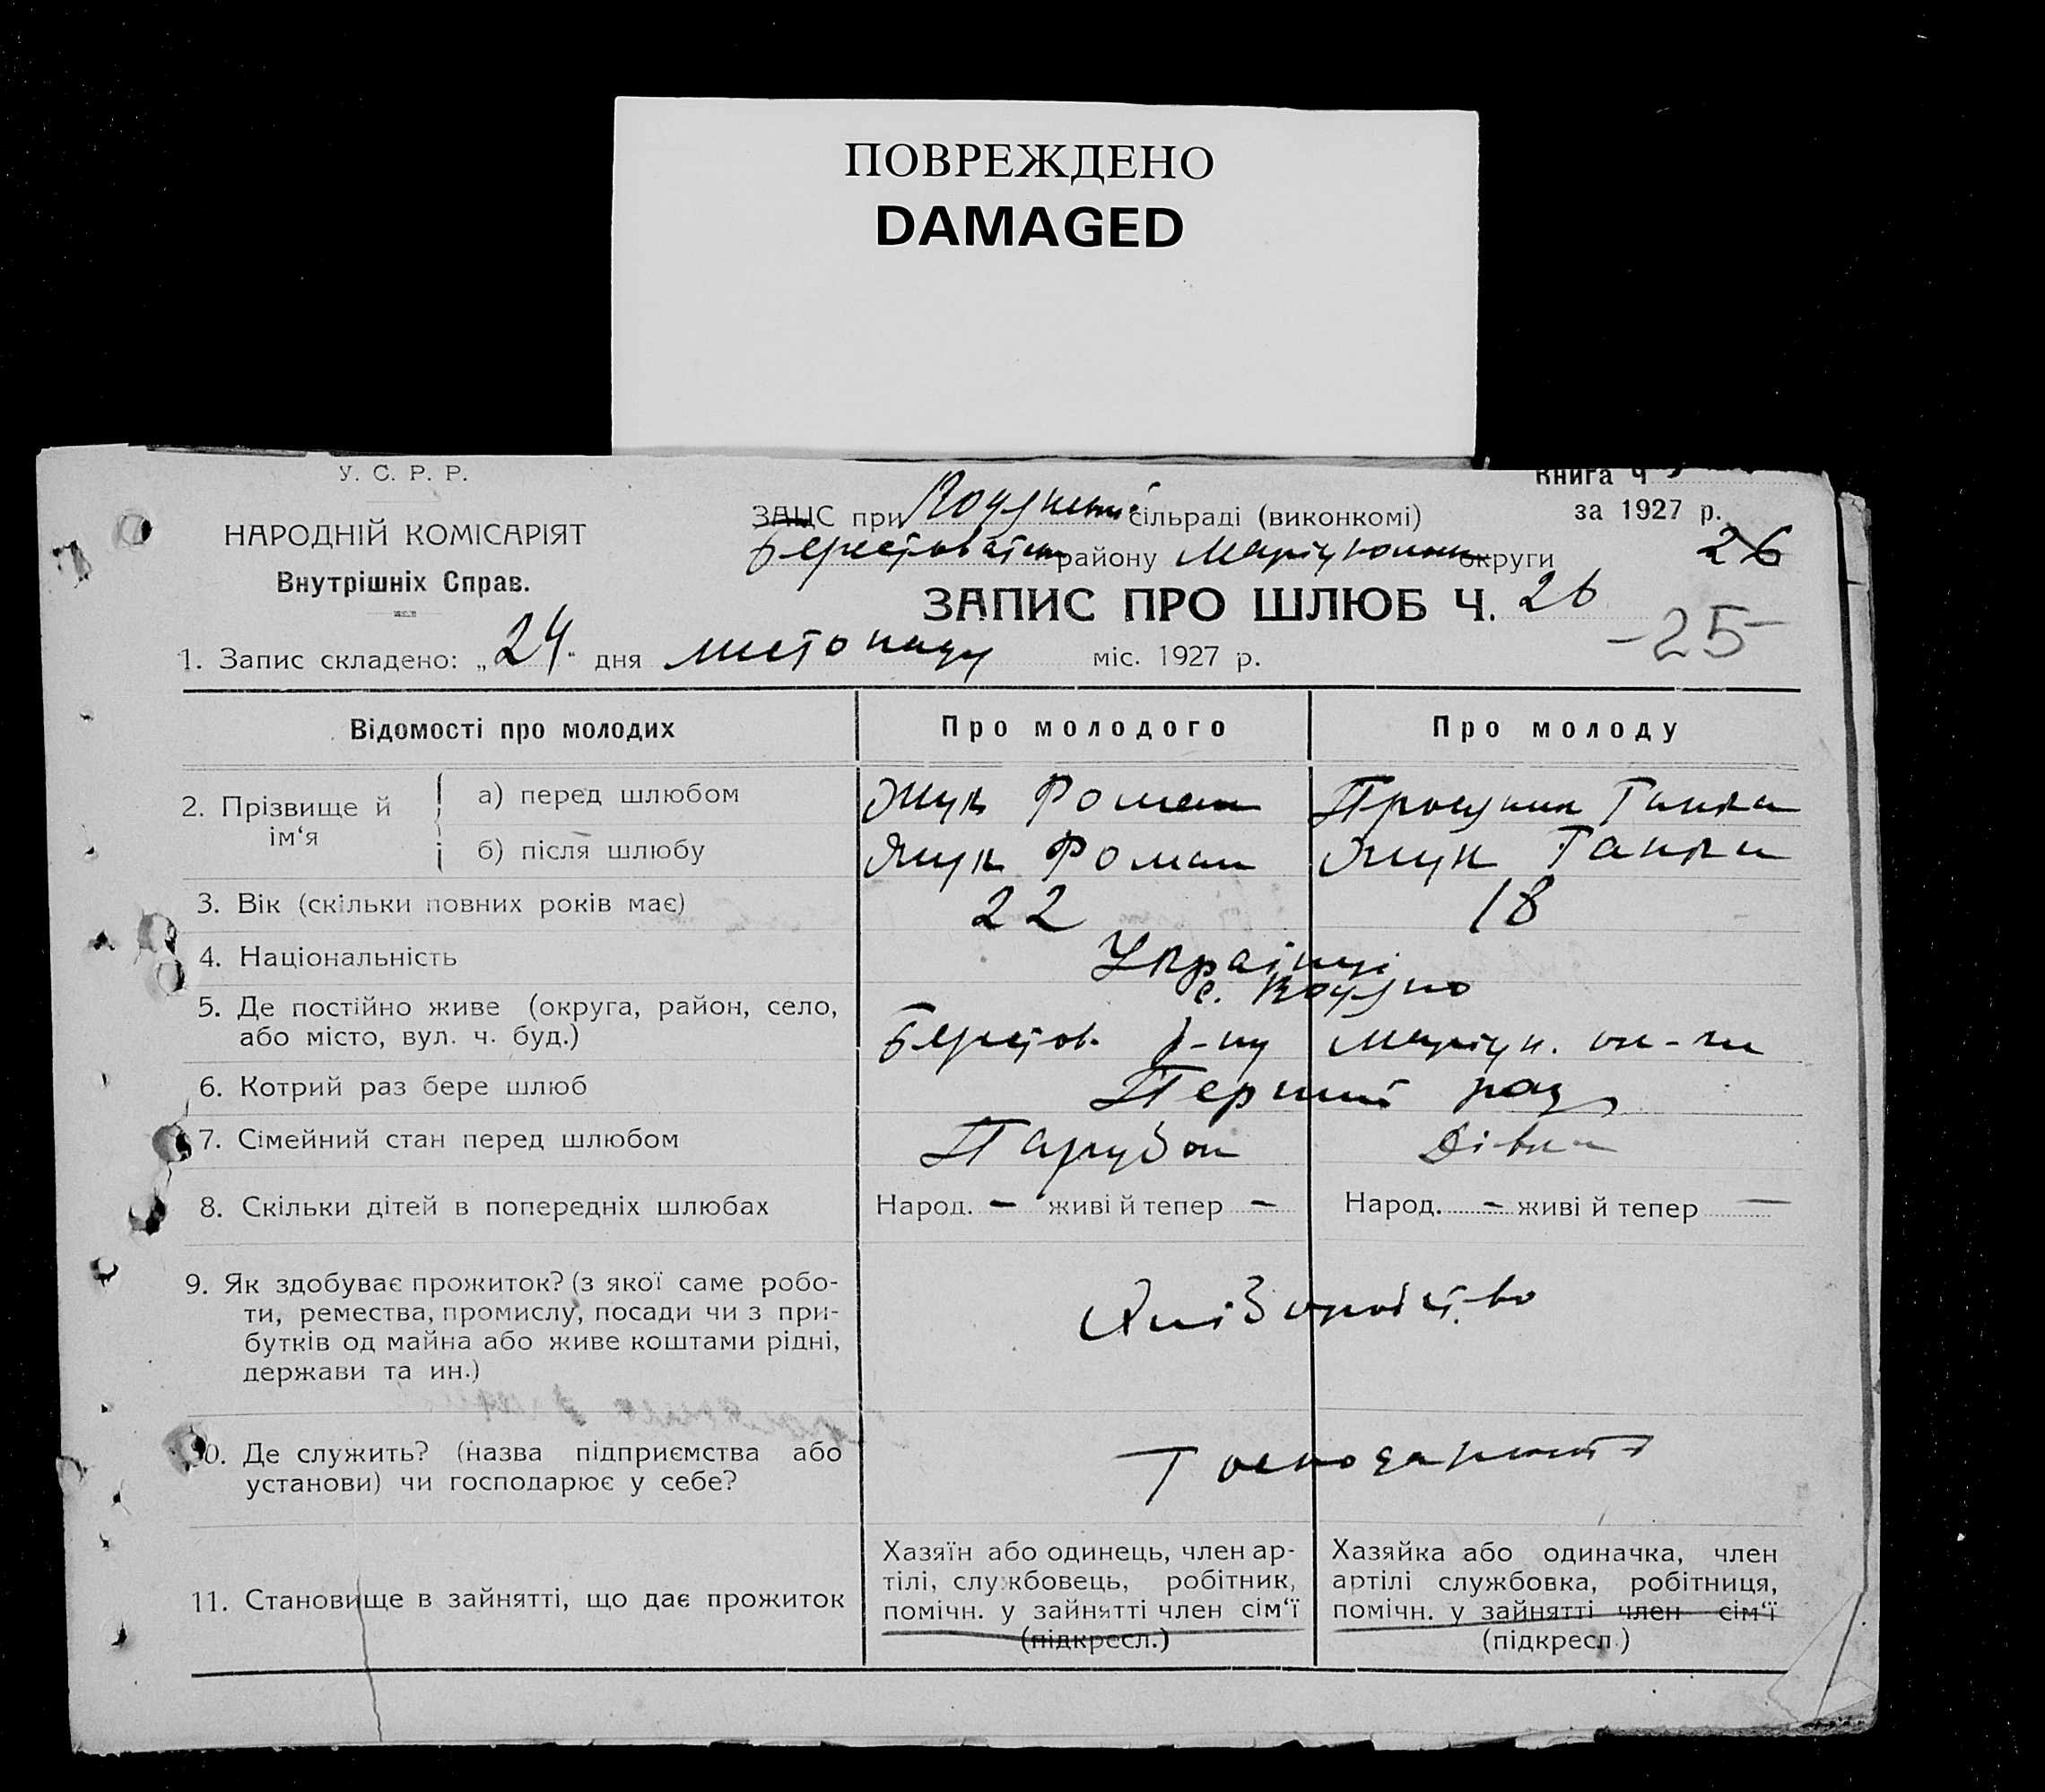 ПОВРЕЖДЕНО
DAMAGED
У. С. Р. Р.
Книга Ч
НАРОДНІЙ КОМІСАРІЯТ
Внутрішніх Справ.
ЗАЦС при сільраді (виконкомі)
за 1927 р.
району округи
26
ЗАПИС ПРО ШЛЮБ Ч. 26
-25-
1. Запис складено: „24“ дня листопаду міс. 1927 р.
Відомості про молодих Про молодого Про молоду
2. Прізвище й ім‘я
а) перед шлюбом Жук Роман Ганна
б) після шлюбу Жук Роман Жук Ганна
3. Вік (скільки повних років має) 22 18
4. Національність Українці
5. Де постійно живе (округа, район, село,
або місто, вул. ч. буд.) Берестов. р-ну Маріуп. ок-ги
6. Котрий раз бере шлюб Перший раз
7. Сімейний стан перед шлюбом Парубок Дівка
8. Скільки дітей в попередніх шлюбах Народ. – живі й тепер – Народ. – живі й тепер –
9. Як здобуває прожиток? (з якої саме робо-
ти, ремества, промислу, посади чи з при-
бутків од майна або живе коштами рідні,
держави та ин.)
Хліборобство
10. Де служить? (назва підприємства або
установи) чи господарює у себе?
11. Становище в зайнятті, що дає прожиток
Хазяїн або одинець, член ар-
тілі, службовець, робітник,
помічн. у зайнятті член сім‘ї
(підкресл.)
Хазяйка або одиначка, член
артілі службовка, робітниця,
помічн. у зайнятті член сім‘ї
(підкресл.)